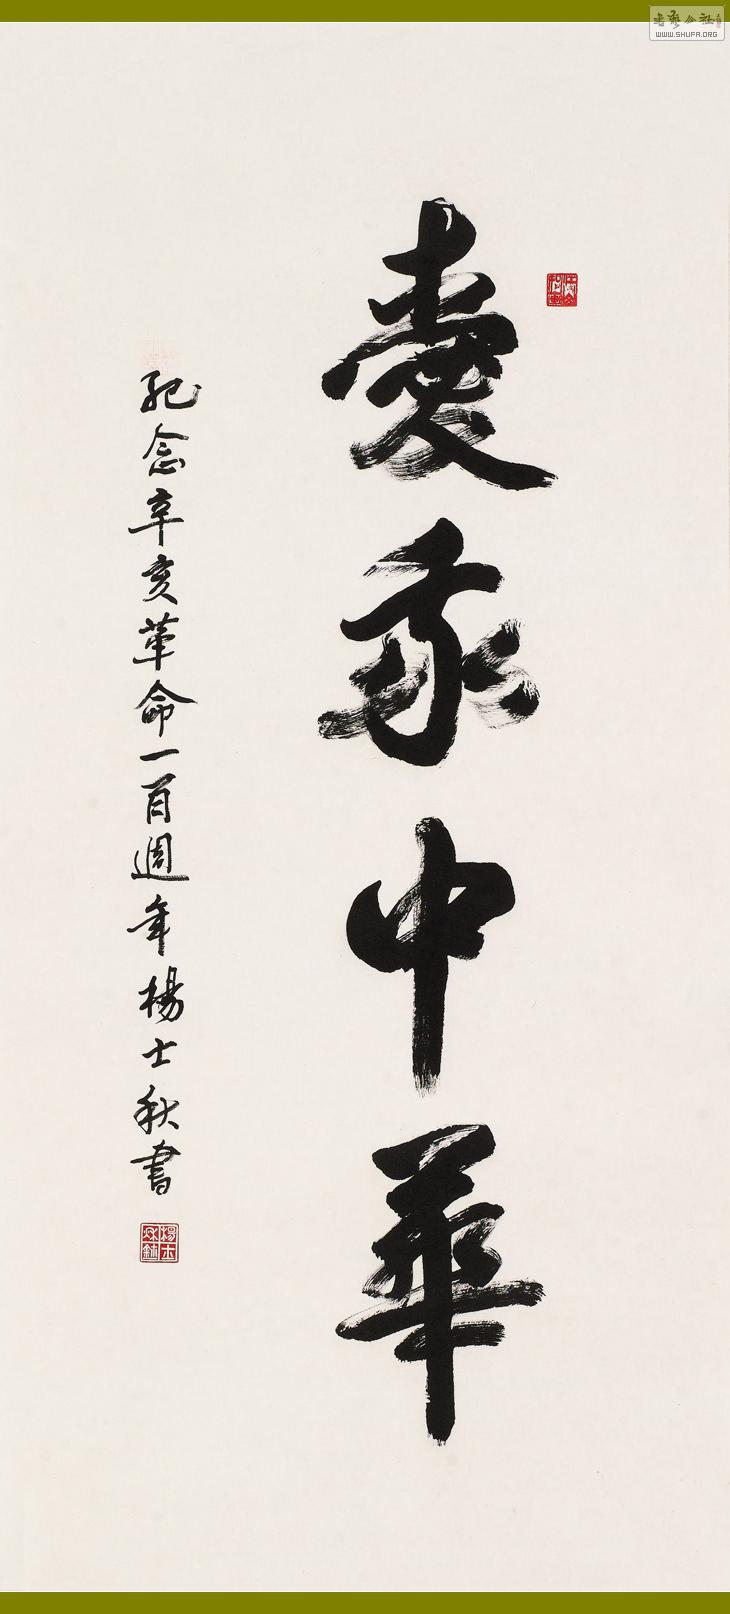 書藝公社
WWW.SHUFA.ORG
愛我中華
紀念辛亥革命一百週年楊士秋書